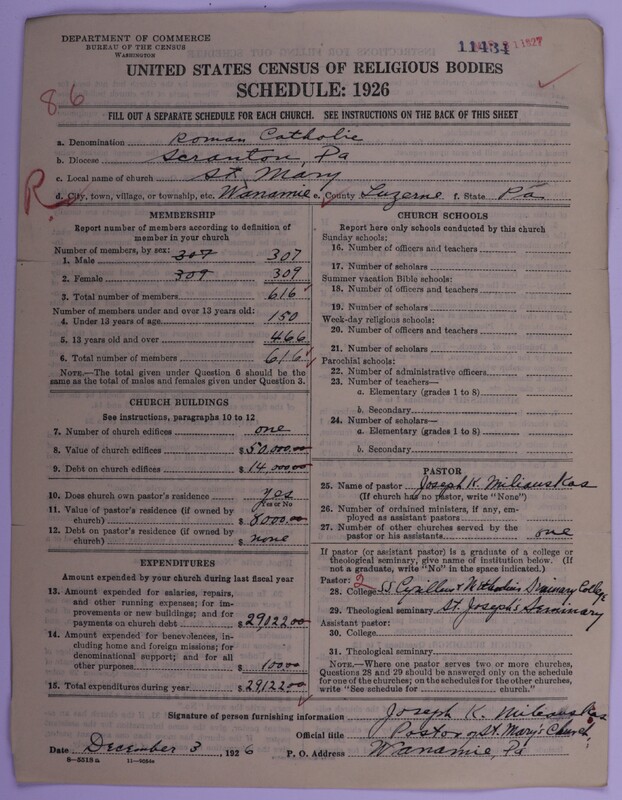 DEPARTMENT OF COMMERCE
BUREAU OF THE CENSUS
WASHINGTON
11434
UNITED STATES CENSUS OF RELIGIOUS BODIES
SCHEDULE: 1926
86
FILL OUT A SEPARATE SCHEDULE FOR EACH CHURCH. SEE INSTRUCTIONS ON THE BACK OF THIS SHEET
a. Denomination Roman Catholic
b. Diocese Scranton, Pa
c. Local name of church St. Mary
R
d. City, town, village, or township, etc. Wanamie e. County Luzerne f. State Pa
MEMBERSHIP
Report number of members according to definition of member in your church
Number of members, by sex:
1. Male 307 307
2. Female 309 309
3. Total number of members 616
Number of members under and over 13 years old:
4. Under 13 years of age 150
5. 13 years old and over 466
6. Total number of members 616
NOTE.—The total given under Question 6 should be the same as the total of males and females given under Question 3.
CHURCH BUILDINGS
See instructions, paragraphs 10 to 12
7. Number of church edifices one
8. Value of church edifices $ 50,000.00
9. Debt on church edifices $ 14000.00
10. Does church own pastor's residence yes
Yes or No
11. Value of pastor's residence (if owned by church) $ 8000.00
12. Debt on pastor's residence (if owned by church) $ none
EXPENDITURES
Amount expended by your church during last fiscal year
13. Amount expended for salaries, repairs, and other running expenses; for improvements or new buildings; and for payments on church debt $ 2912200
14. Amount expended for benevolences, including home and foreign missions; for denominational support; and for all other purposes $ 10000
15. Total expenditures during year $ 2912200
CHURCH SCHOOLS
Report here only schools conducted by this church
Sunday schools:
16. Number of officers and teachers
17. Number of scholars
Summer vacation Bible schools:
18. Number of officers and teachers
19. Number of scholars
Week-day religious schools:
20. Number of officers and teachers
21. Number of scholars
Parochial schools:
22. Number of administrative officers
23. Number of teachers—
a. Elementary (grades 1 to 8)
b. Secondary
24. Number of scholars—
a. Elementary (grades 1 to 8)
b. Secondary
PASTOR
25. Name of pastor Joseph K. Miliauskas
(If church has no pastor, write "None")
26. Number of ordained ministers, if any, employed as assistant pastors
27. Number of other churches served by the pastor or his assistants one
If pastor (or assistant pastor) is a graduate of a college or theological seminary, give name of institution below. (If not a graduate, write "No" in the space indicated.)
Pastor: 2
28. College SS Cyrillus & Methodius College
29. Theological seminary St. Joseph's Seminary
Assistant pastor:
30. College
31. Theological seminary
NOTE.—Where one pastor serves two or more churches, Questions 28 and 29 should be answered only on the schedule for one of the churches; on the schedules for the other churches, write "See schedule for church."
Signature of person furnishing information Joseph K. Miliauskas
Official title Pastor of St. Mary's Church
Date December 3, 1926 P. O. Address Wanamie, Pa
8—5518a 11—9064a